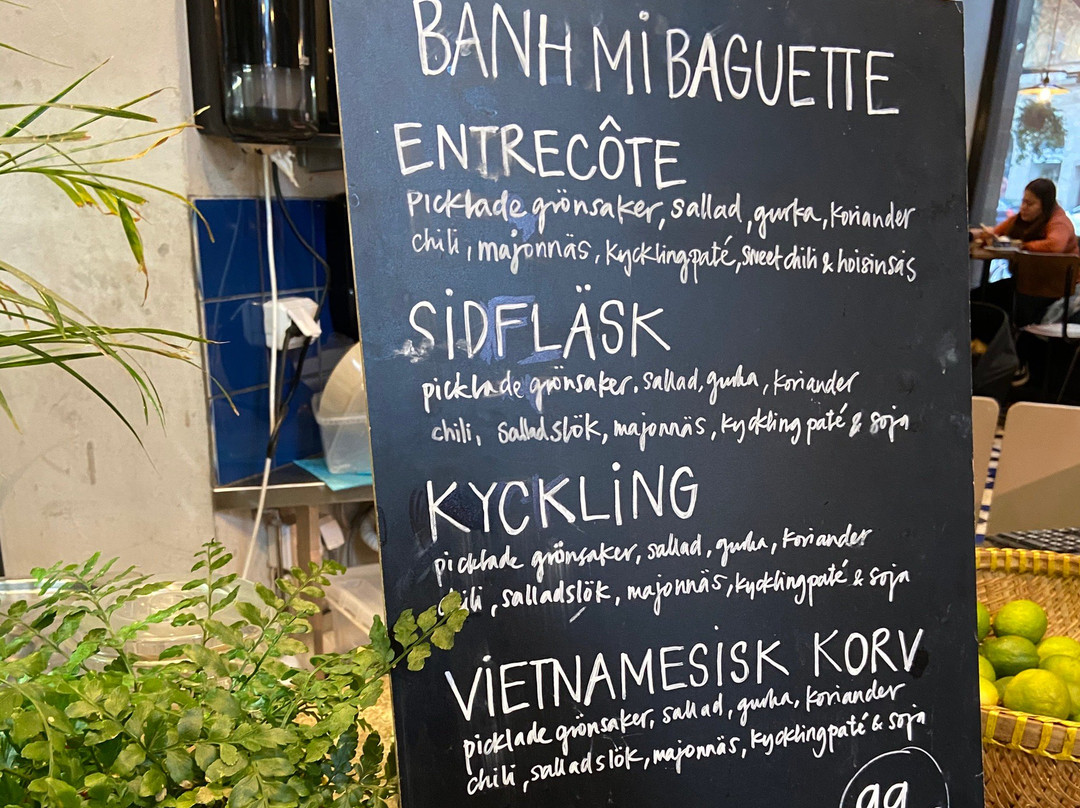 BANH MI BAGUETTE
ENTRECÔTE
picklade grönsaker, sallad, gurka, koriander
chili, majonnäs, kycklingpaté, sweet chili & hoisinsås
SIDFLÄSK
picklade grönsaker, sallad, gurka, koriander
chili, salladslök, majonnäs, kyckling paté & soja
KYCKLING
picklade grönsaker, sallad, gurka, koriander
chili, salladslök, majonnäs, kycklingpaté & soja
VIETNAMESISK KORV
picklade grönsaker, sallad, gurka, koriander
chili, salladslök, majonnäs, kycklingpaté & soja